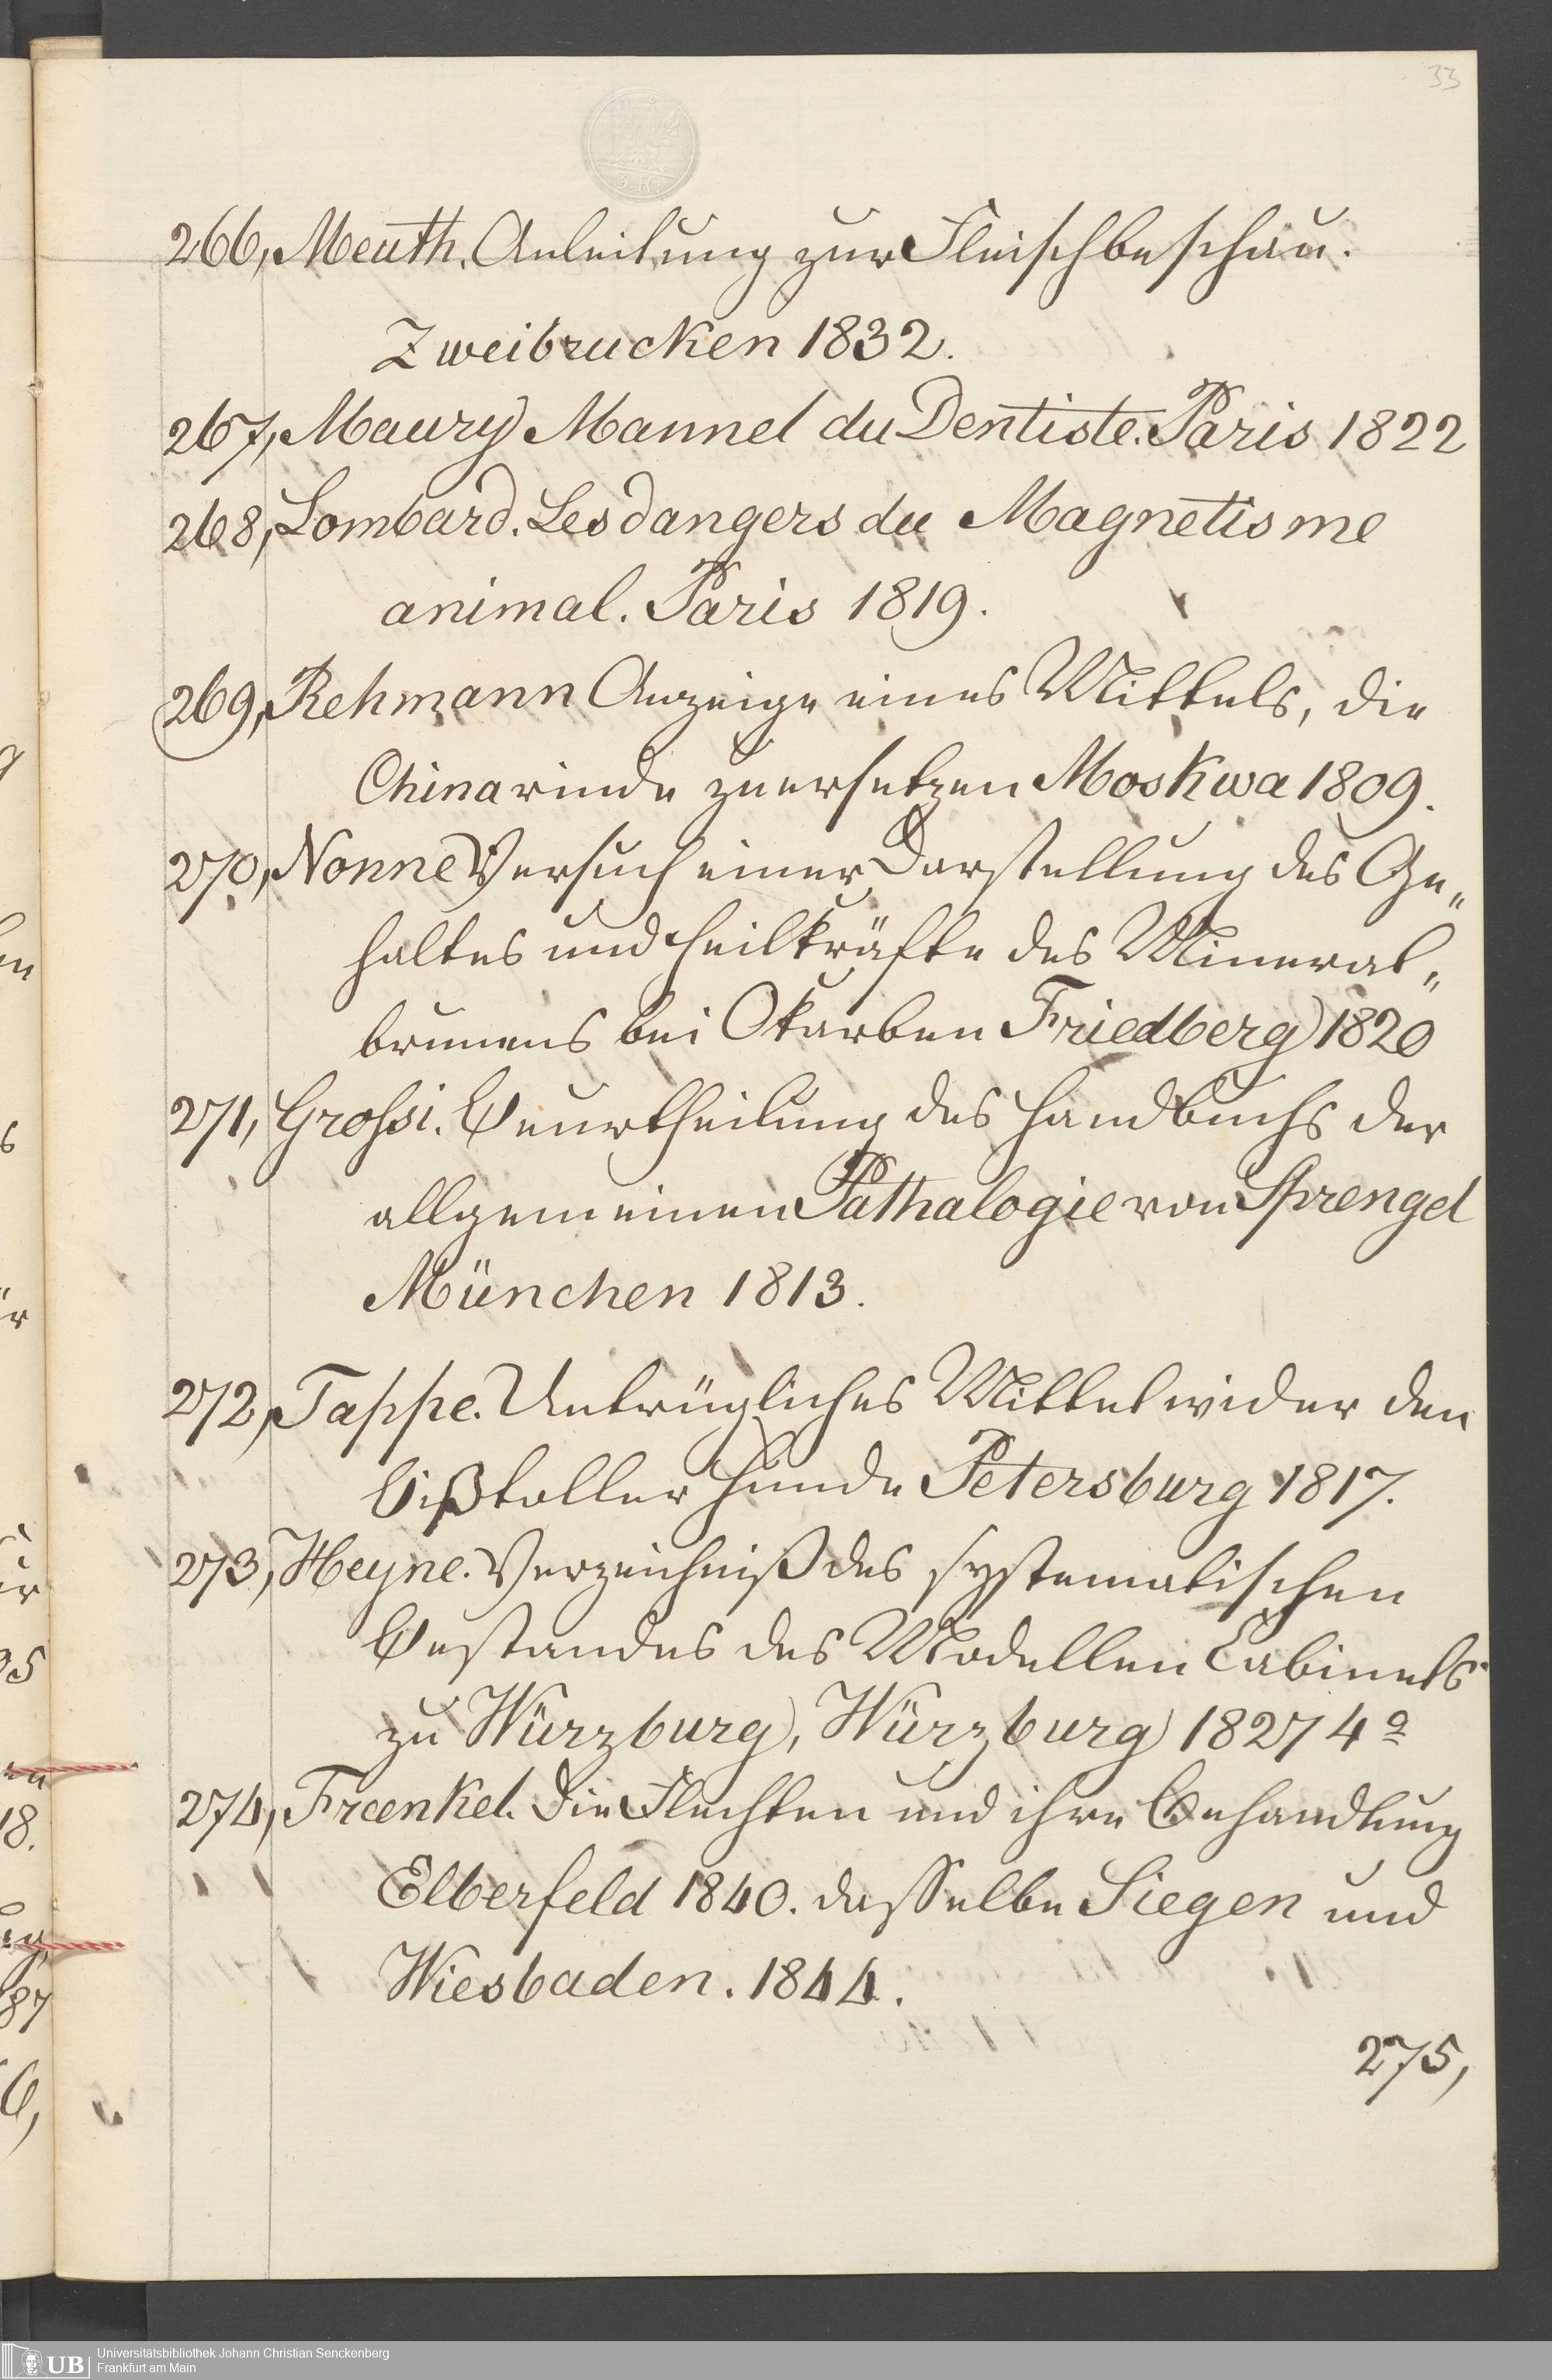 33
266, Meuth. Anleitung zur Fleischbeschau.
Zweibrucken 1832.
267, Maury Mannel du Dentiste. Paris 1822
268, Lombard. Les dangers du Magnetisme
animal. Paris 1819.
269, Rehmann Anzeige eines Mittels, die
Chinarinde zu ersetzen Moskwa 1809.
270, Nonne Versuch einer Darstellung des Ge„
haltes und Heilkräfte des Mineral„
brunnens bei Okarben Friedberg 1820
271, Grossi. Beurtheilung des Handbuchs der
allgemeinen Pathalogie von Sprengel
München 1813.
272, Tappe. Untrügliches Mittel wider den
Biß toller Hunde Petersburg 1817.
273, Heyne. Verzeichniß des systematischen
Bestandes des Modellen Cabinets
zu Würzburg, Würzburg 1827 4º
274, Fraenkel. Die Flechten und ihre Behandlung
Elberfeld 1840. dasselbe Siegen und
Wiesbaden. 1844.
275,
UB
Universitätsbibliothek Johann Christian Senckenberg
Frankfurt am Main